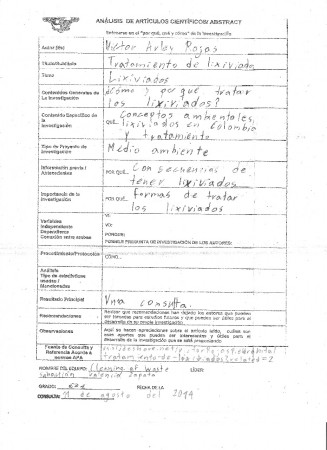 ANÁLISIS DE ARTÍCULOS CIENTÍFICOS/ ABSTRACT
Enfocarse en el "por qué, qué y cómo" de la investigación
Autor (Es) Victor Arles Rojas
Título/Subtítulo Tratamiento de lixiviado
Tema Lixiviados
Contenidos Generales de la Investigación ¿Cómo y por qué tratar los lixiviados?
Contenido Específico de la Investigación QUE, Conceptos ambientales, lixiviados en Colombia y tratamiento
Tipo de Proyecto de Investigación Medio ambiente
Información previa / Antecedentes POR QUE, Consecuencias de tener lixiviados
Importancia de la Investigación POR QUE, formas de tratar los lixiviados
Variables
Independiente
Dependiente
Conexión entre ambas
VI:
VD:
PORQUE:
POSIBLE PREGUNTA DE INVESTIGACIÓN DE LOS AUTORES:
Procedimiento/Protocolo CÓMO,
Análisis
Tipo de estadísticos usados /
Resultado Principal Una consulta.
Recomendaciones Revisar que recomendaciones han dejado los autores que puedan ser útiles para el desarrollo de su propia investigación.
Observaciones Aquí se hacen apreciaciones sobre el artículo leído, cuáles son los aportes que pueden ser interesantes y útiles para el desarrollo de la investigación que se está proponiendo
Fuente de Consulta y Referencia Acorde a normas APA
NOMBRE DEL EQUIPO: Cleaning of Waste LÍDER:
Sebastián Valencia Zapata
GRADO: FECHA DE LA
CONSULTA: 11 de agosto del 2014